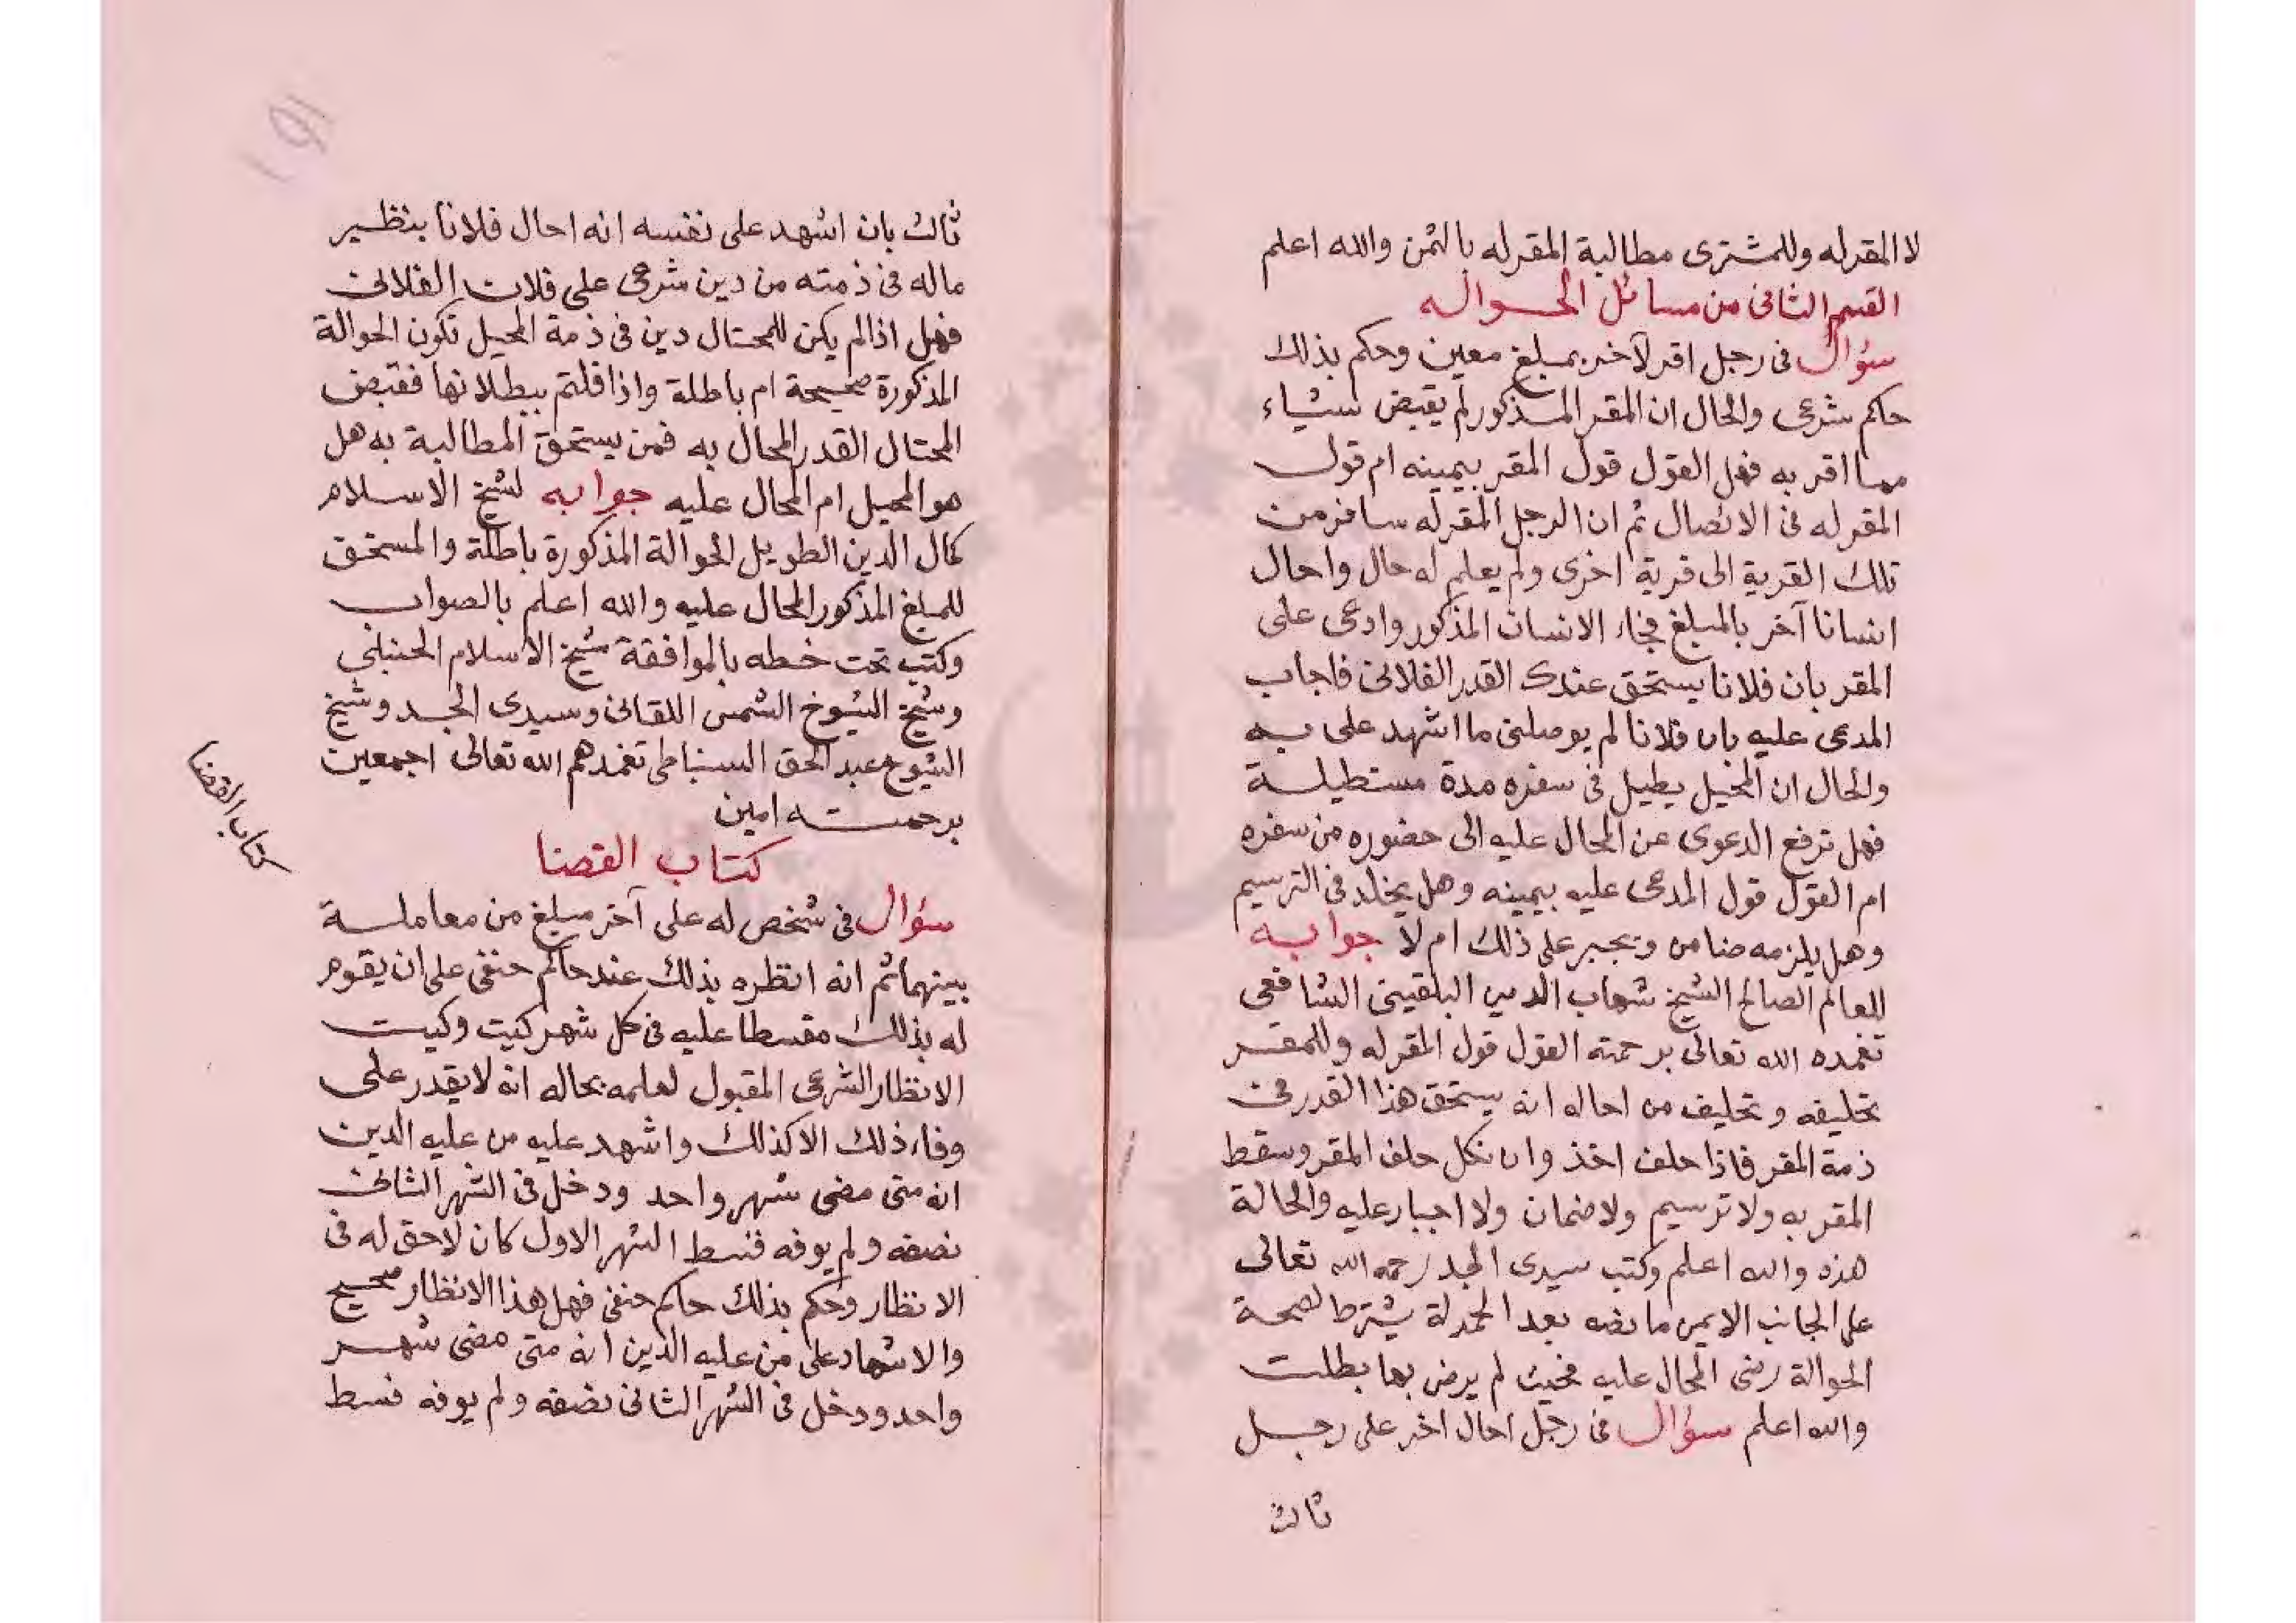 لا المقر له وللمشترى مطالبة المقر له بالثمن والله اعلم
القسم الثانى من مسائل الحواله
سؤال فى رجل اقر لآخر بمبلغ معين وحكم بذلك
حاكم شرعى والحال ان المقر المذكور لم يقبض شياء
مما اقر به فهل القول قول المقر بيمينه ام قول
المقر له فى الاتصال ثم ان الرجل المقر له سافر من
تلك القرية الى قرية اخرى ولم يعلم له حال واحال
انسانا آخر بالمبلغ فجاء الانسان المذكور وادعى على
المقر بان فلانا يستحق عندك القدر الفلانى فاجاب
المدعى عليه بان فلانا لم يوصلنى ما اشهد على به
والحال ان المحيل يطيل فى سفره مدة مستطيلة
فهل ترفع الدعوى عن المحال عليه الى حضوره من سفره
ام القول قول المدعى عليه بيمينه وهل يخلد فى الترسيم
وهل يلزمه ضامن ويجبر على ذلك ام لا جوابه
للعالم الصالح الشيخ شهاب الدين البلقينى الشافعى
تغمده الله تعالى برحمته القول قول المقر له وللمقر
تحليفه وتحليف من احاله انه يستحق هذا القدر فى
ذمة المقر فاذا حلف اخذ وان نكل حلف المقر وسقط
المقر به ولا ترسيم ولا ضمان ولا اجبار عليه والحالة
هذه والله اعلم وكتب سيدى الجد رحمه الله تعالى
على الجانب الايمن ما نصه بعد الحمدلة يشترط لصحة
الحوالة رضى المحال عليه فحيث لم يرض بها بطلت
والله اعلم سؤال فى رجل احال اخر على رجل
ثالث
ثالث بان اشهد على نفسه انه احال فلانا بنظير
ماله فى ذمته من دين شرعى على فلان الفلانى
فهل اذا لم يكن للمحتال دين فى ذمة المحيل تكون الحوالة
المذكورة صحيحة ام باطلة واذا قلتم ببطلانها فقبض
المحتال القدر المحال به فمن يستحق المطالبة به هل
هو المحيل ام المحال عليه جوابه لشيخ الاسلام
كمال الدين الطويل الحوالة المذكورة باطلة والمستحق
للمبلغ المذكور المحال عليه والله اعلم بالصواب
وكتب تحت خطه بالموافقة شيخ الاسلام الحنبلى
وشيخ الشيوخ الشمس اللقانى وسيدى الجد وشيخ
الشيوخ عبد الحق السنباطى تغمدهم الله تعالى اجمعين
برحمته امين
كتاب القضا
كتاب القضا
سؤال فى شخص له على آخر مبلغ من معاملة
بينهما ثم انه انظره بذلك عند حاكم حنفى على ان يقوم
له بذلك مقسطا عليه فى كل شهر كيت وكيت
الانظار الشرعى المقبول لعلمه بحاله انه لا يقدر على
وفاء ذلك الا كذلك واشهد عليه من عليه الدين
انه متى مضى شهر واحد ودخل فى الشهر الثانى
نصفه ولم يوفه قسط الشهر الاول كان لا حق له فى
الانظار وحكم بذلك حاكم حنفى فهل هذا الانظار صحيح
والاشهاد على من عليه الدين انه متى مضى شهر
واحد ودخل فى الشهر الثانى نصفه ولم يوفه قسط